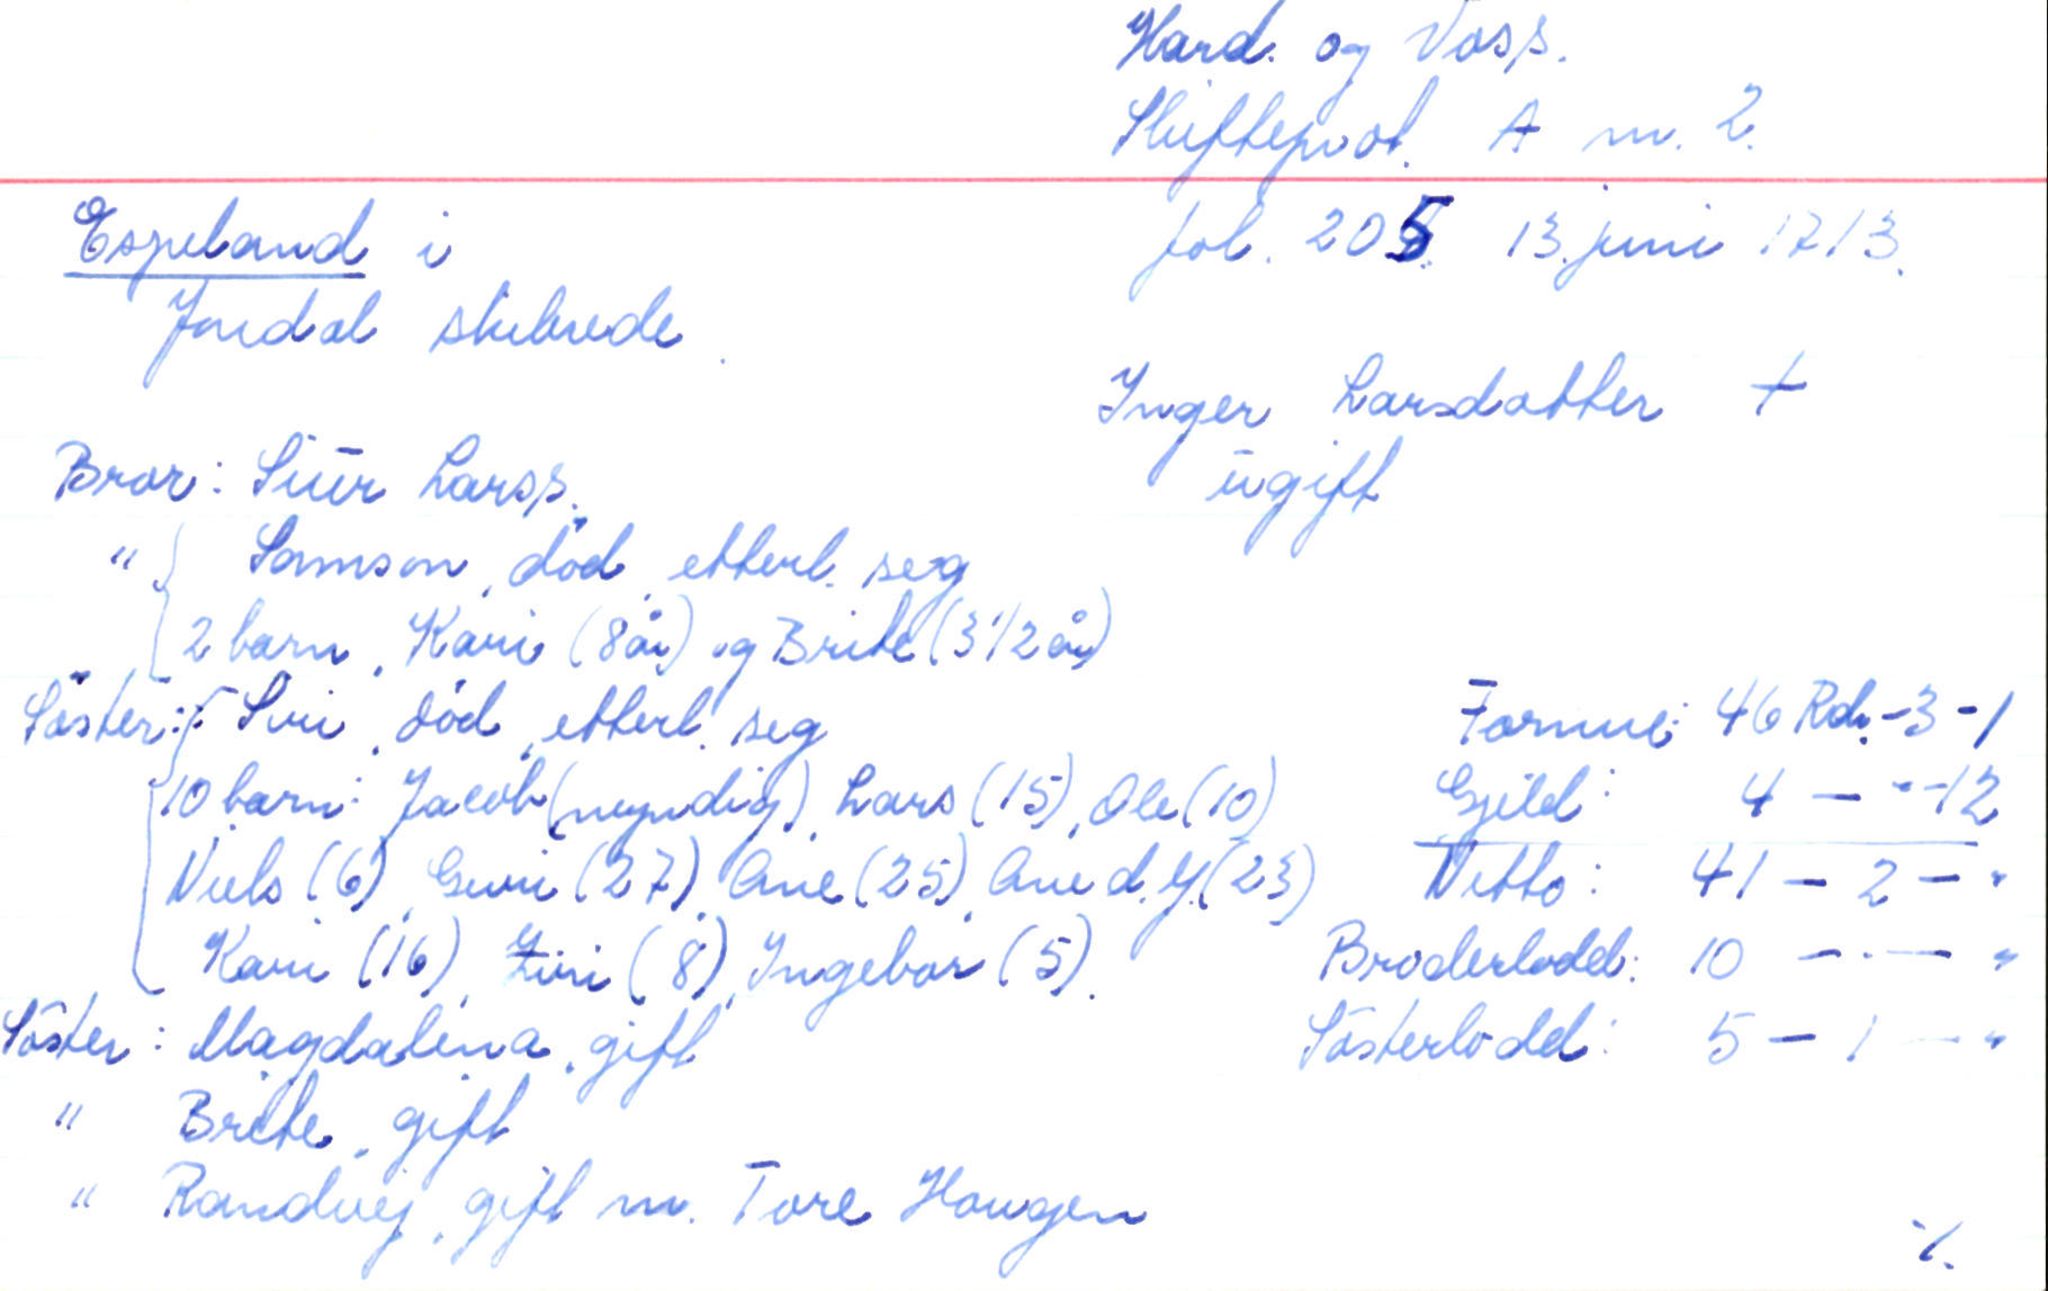 Hard. og Voss.
Skifteprot. A nr. 2.
fol. 205. 13. juni 1713.
Espeland i
Jondal skibrede.
Inger Larsdatter †
ugift
Bror: Siur Larss.
" Samson, död, etterl. seg
2 barn, Kari (8 år) og Brite (3 1/2 år)
Söster: Siri, död, etterl. seg
10 barn: Jacob (myndig), Lars (15), Ole (10)
Niels (6), Guri (27), Ane (25), Ane d. Y. (23)
Kari (16), Siri (8), Ingebor (5).
Söster: Magdalena, gift
" Brite, gift
" Randvej, gift m. Tore Haugen
Formue: 46 Rd. - 3 - 1
Gjeld: 4 - " - 12
Netto: 41 - 2 - "
Broderlodd: 10 - . - "
Sösterlodd: 5 - 1 - "
%.